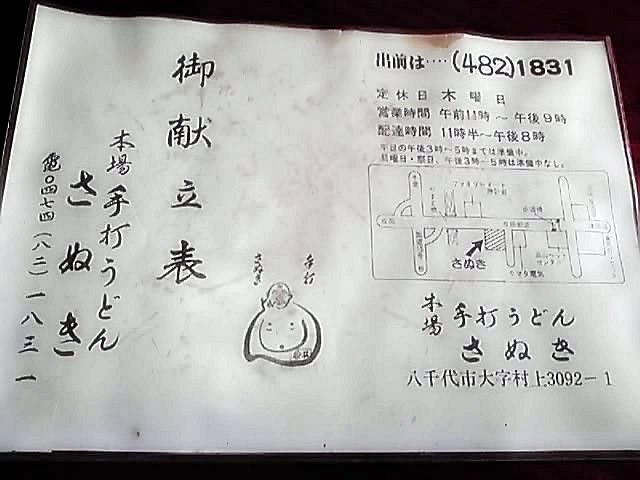 御献立表
本場
手打うどん
さぬき
電〇四七四(八二)一八三一
手打
さぬき
出前は‥‥(482)1831
定休日 木曜日
営業時間 午前11時～午後9時
配達時間 11時半～午後8時
平日の午後3時～5時までは準備中。
日曜日・祭日、午後3時～5時は準備中なし。
さぬき
ヤマダ電気
本場
手打うどん
さぬき
八千代市大字村上3092－1